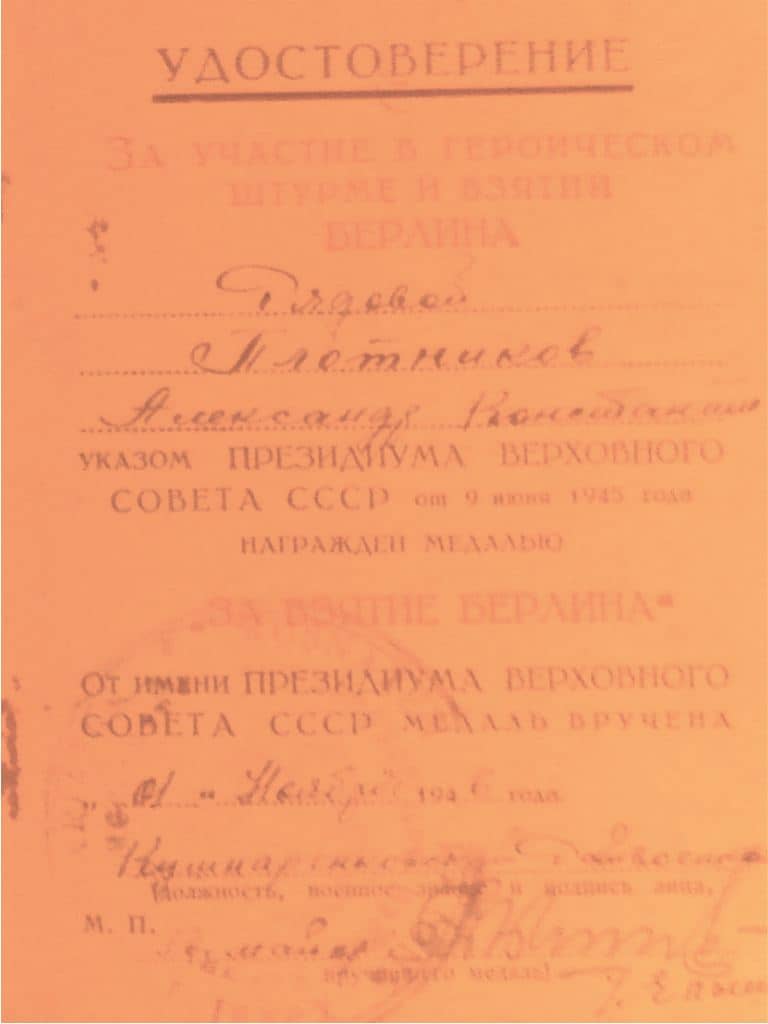 УДОСТОВЕРЕНИЕ
ЗА УЧАСТИЕ В ГЕРОИЧЕСКОМ
ШТУРМЕ И ВЗЯТИИ
БЕРЛИНА
Рядовой
Плотников
Александр Константин
УКАЗОМ ПРЕЗИДИУМА ВЕРХОВНОГО
СОВЕТА СССР от 9 июня 1945 года
НАГРАЖДЕН МЕДАЛЬЮ
„ЗА ВЗЯТИЕ БЕРЛИНА“
От имени ПРЕЗИДИУМА ВЕРХОВНОГО
СОВЕТА СССР МЕДАЛЬ ВРУЧЕНА
„01“ Ноября 1946 года
Кушнаренковский Райвоенком
(должность, военное звание и подпись лица,
М. П.
майор
вручившего медаль)